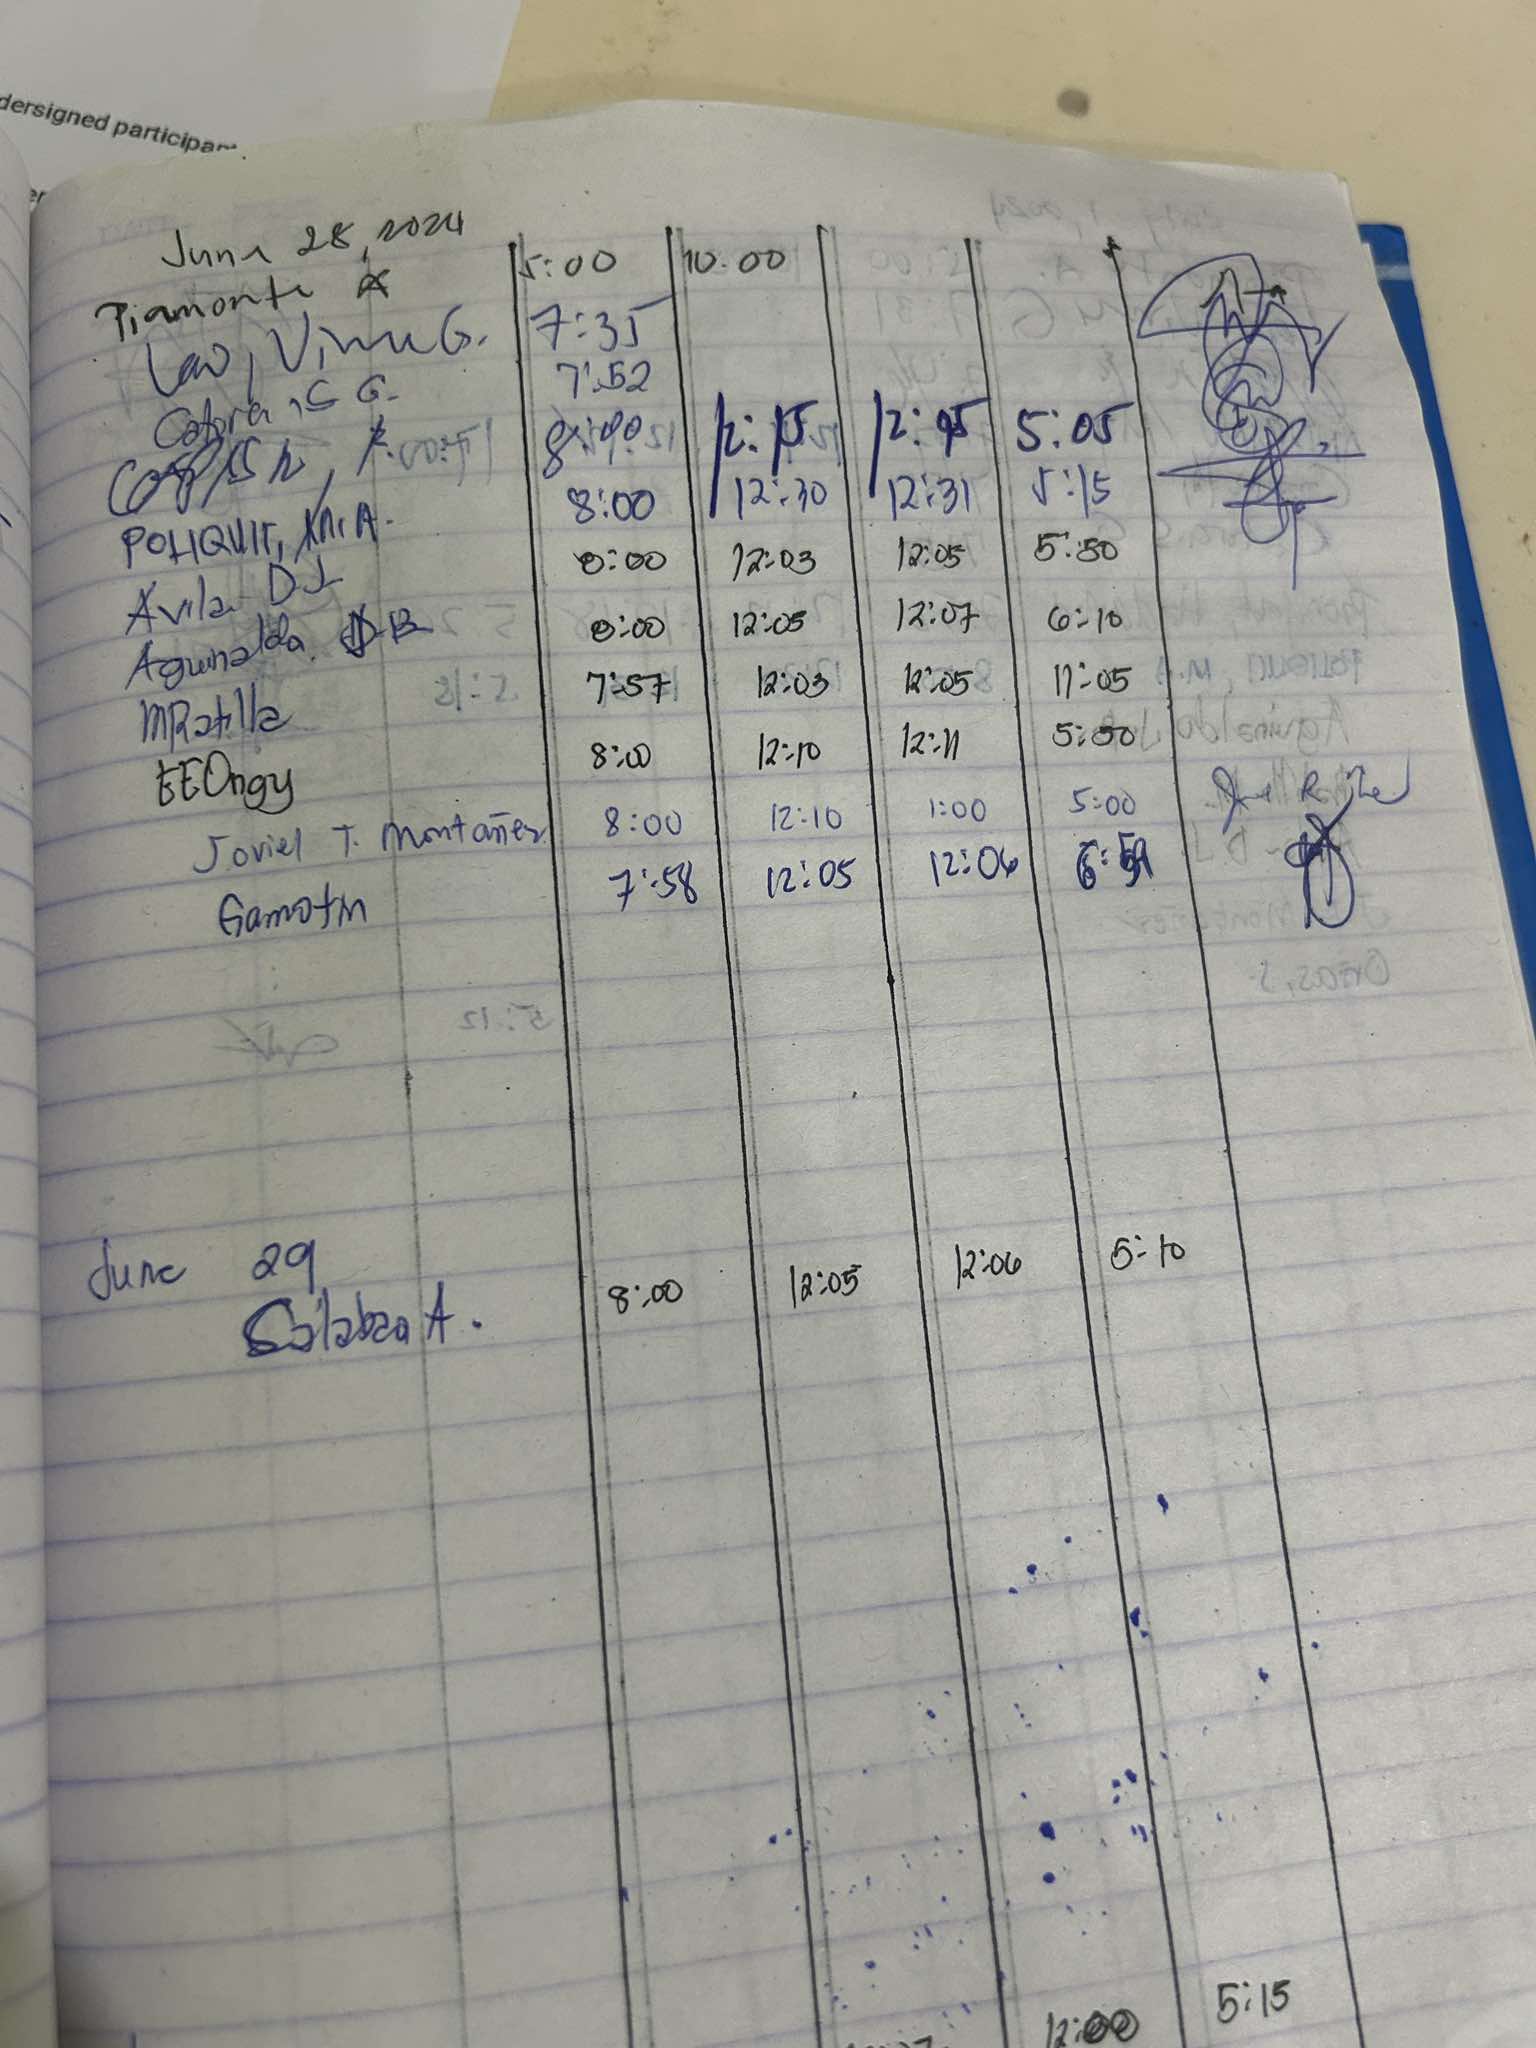 dersigned participan
June 28, 2024
Piamonte A 5:00 10:00
Lao, G. 7:35
G. 7:52
8:00 12:15 12:45 5:05
POLIQUIT, M.A. 8:00 12:30 12:31 5:15
Avila DJ 8:00 12:03 12:05 5:50
Aguinaldo 8:00 12:05 12:07 6:10
MRatilla 7:57 12:03 12:05 11:05
EEOngy 8:00 12:10 12:11 5:50
Joviel T. Montañez 8:00 12:10 1:00 5:00
Gamotin 7:58 12:05 12:06
June 29
Salabao A. 8:00 12:05 12:06 5:10
12:00 5:15